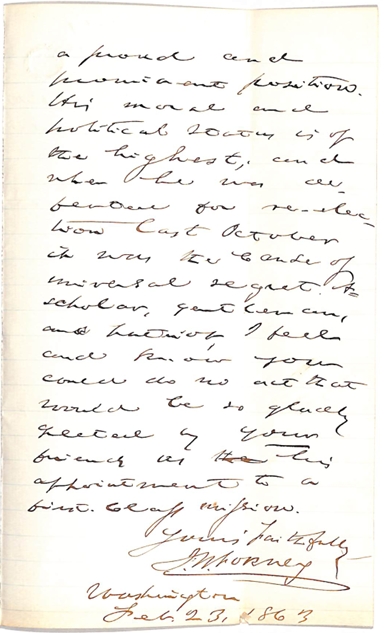 a proud and
prominent position.
His moral and
political status is of
the highest, and
when he was de-
feated for re-elec-
tion last October
it was the cause of
universal regret. A
scholar, gentleman,
and patriot, I feel
and know you
could do no act that
would be so gladly
greeted by your
friends as the his
appointment to a
first class mission.
Yours Faithfully
J.W. Forney
Washington
Feb. 23, 1863